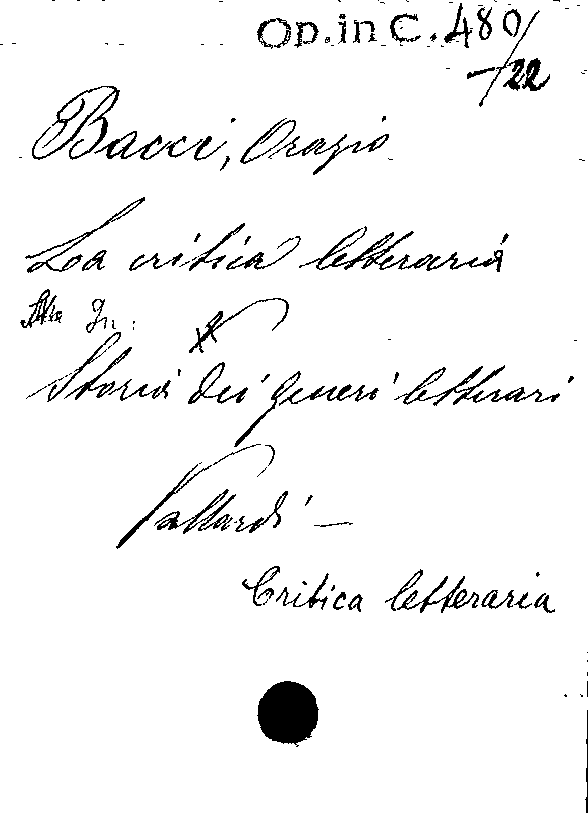 Op. in C. 480
-/22
Bacci, Orazio
La critica letteraria
In:
Storia dei generi letterari
Vallardi —
Critica letteraria